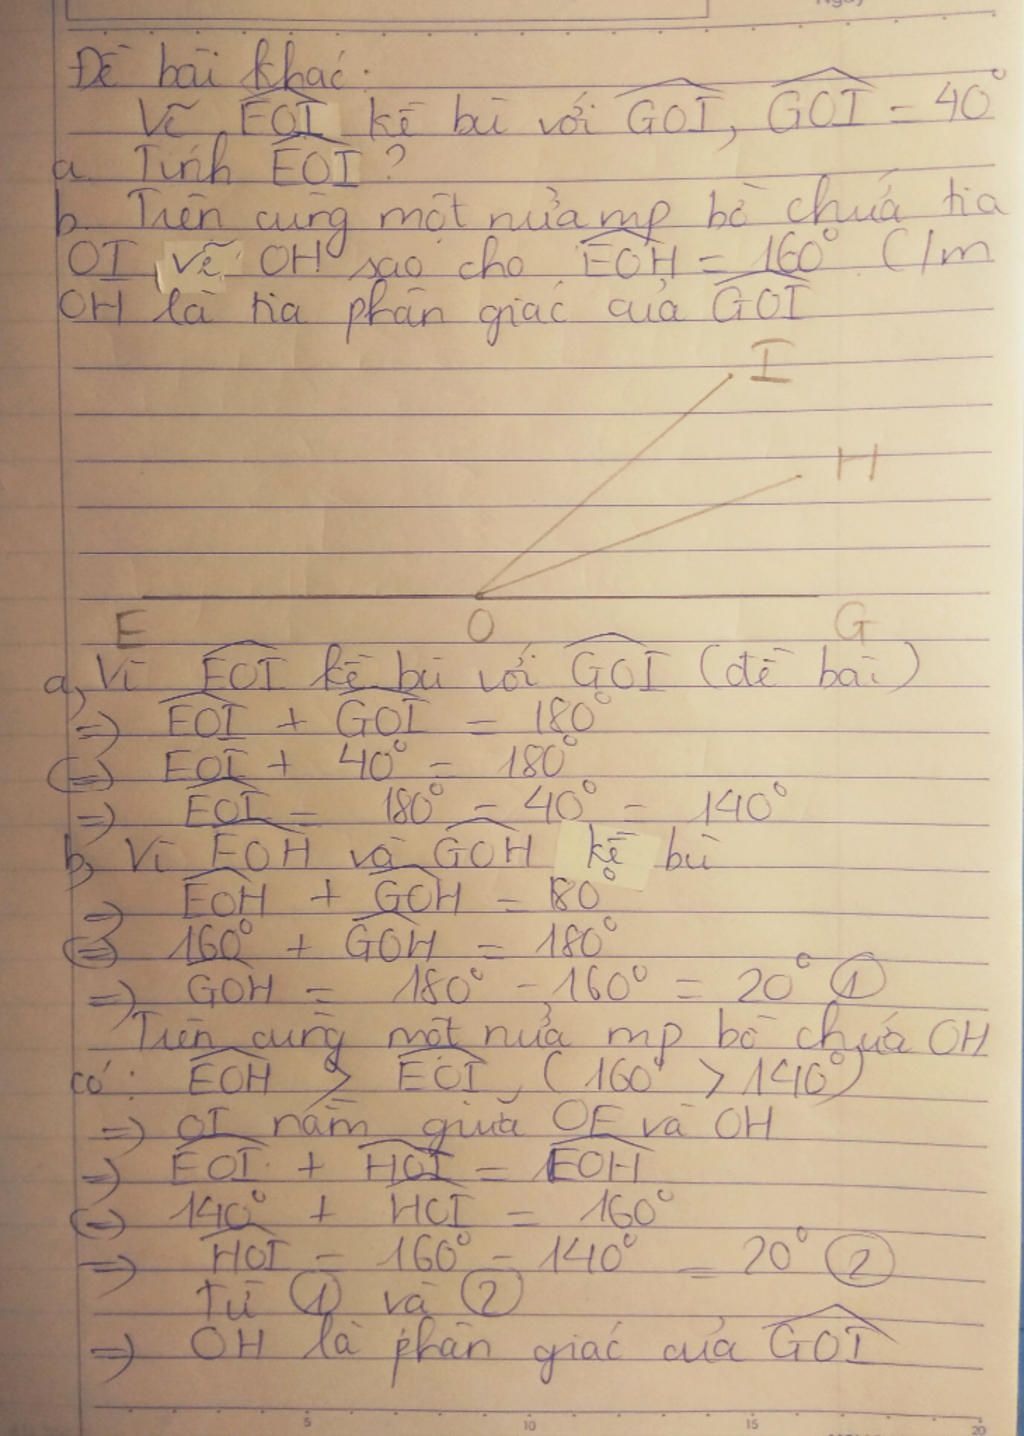 Đề bài khác.
Vẽ EOI kề bù với GOI, GOI = 40°
a. Tính EOI?
b. Trên cùng một nửa mp bờ chứa tia
OI, vẽ OH sao cho EOH = 160°. C/m
OH là tia phân giác của GOI
I
H
E O G
a, Vì EOI kề bù với GOI (đề bài)
=> EOI + GOI = 180°
<=> EOI + 40° = 180°
=> EOI = 180° - 40° = 140°
b, Vì EOH và GOH kề bù
=> EOH + GOH = 180°
<=> 160° + GOH = 180°
=> GOH = 180° - 160° = 20° ①
Trên cùng một nửa mp bờ chứa OH
có: EOH > EOI, (160° > 140°)
=> OI nằm giữa OE và OH
=> EOI + HOI = EOH
<=> 140° + HOI = 160°
=> HOI = 160° - 140° = 20° ②
Từ ① và ②
=> OH là phân giác của GOI
5 10 15 20